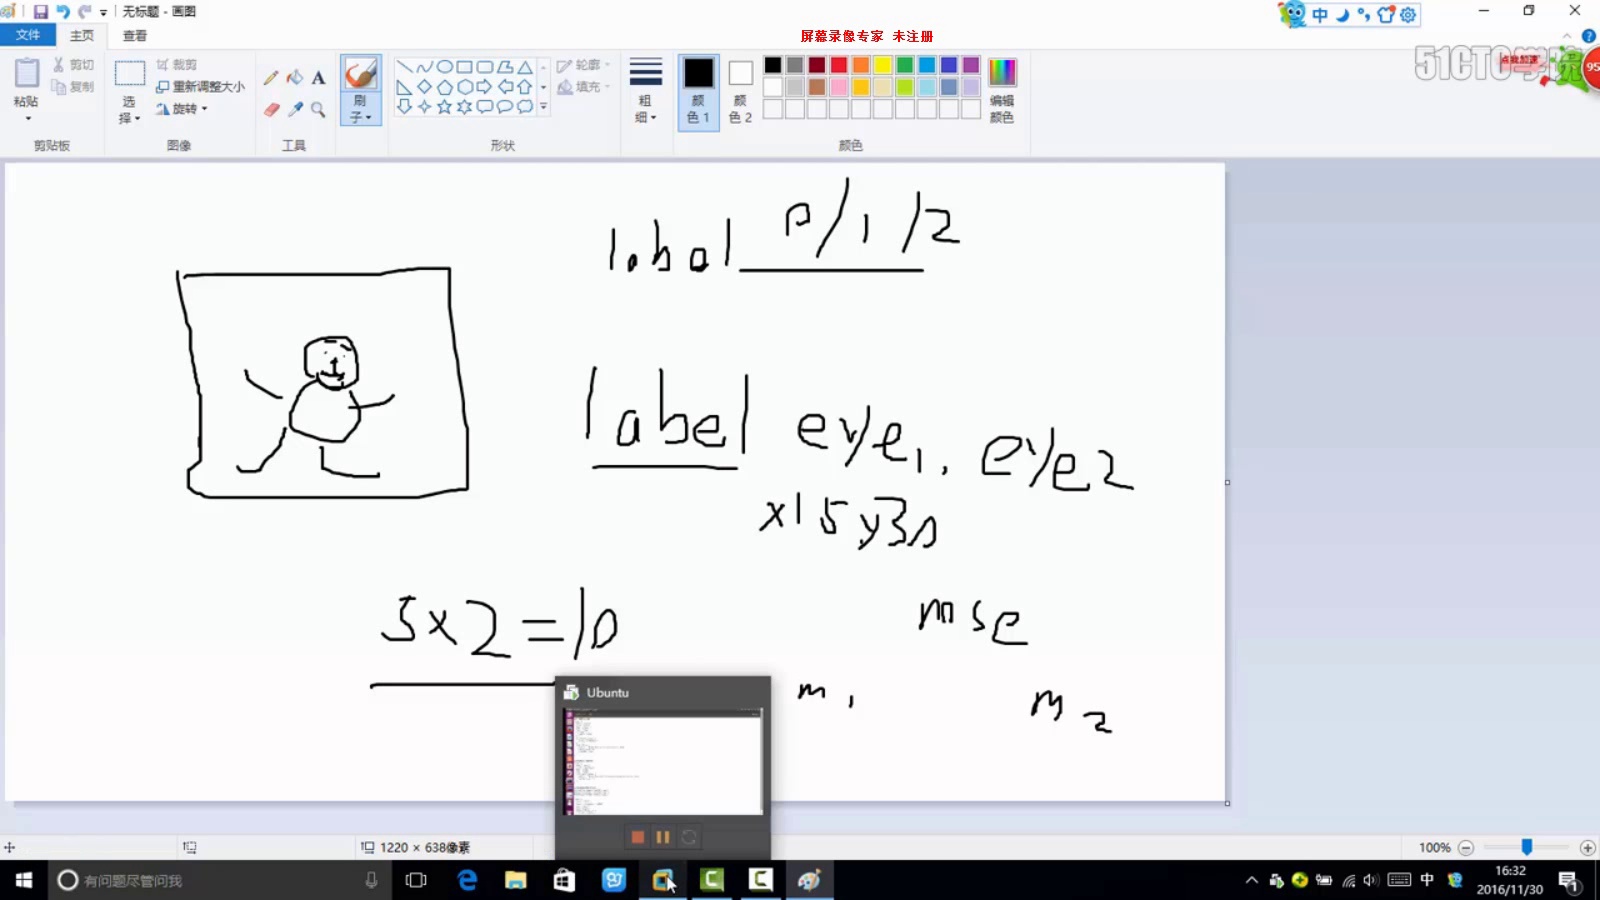 无标题 - 画图
中
文件
主页
查看
屏幕录像专家 未注册
51CTO学院
点我加速
95
粘贴
剪切
复制
剪贴板
选择
裁剪
重新调整大小
旋转
图像
A
工具
刷子
轮廓
填充
形状
粗细
颜色 1
颜色 2
编辑颜色
颜色
label 0/1/2
label eye1, eye2
x15y30
5x2=10
mse
m1
m2
Ubuntu
1220 × 638像素
100%
有问题尽管问我
中
16:32
2016/11/30
1